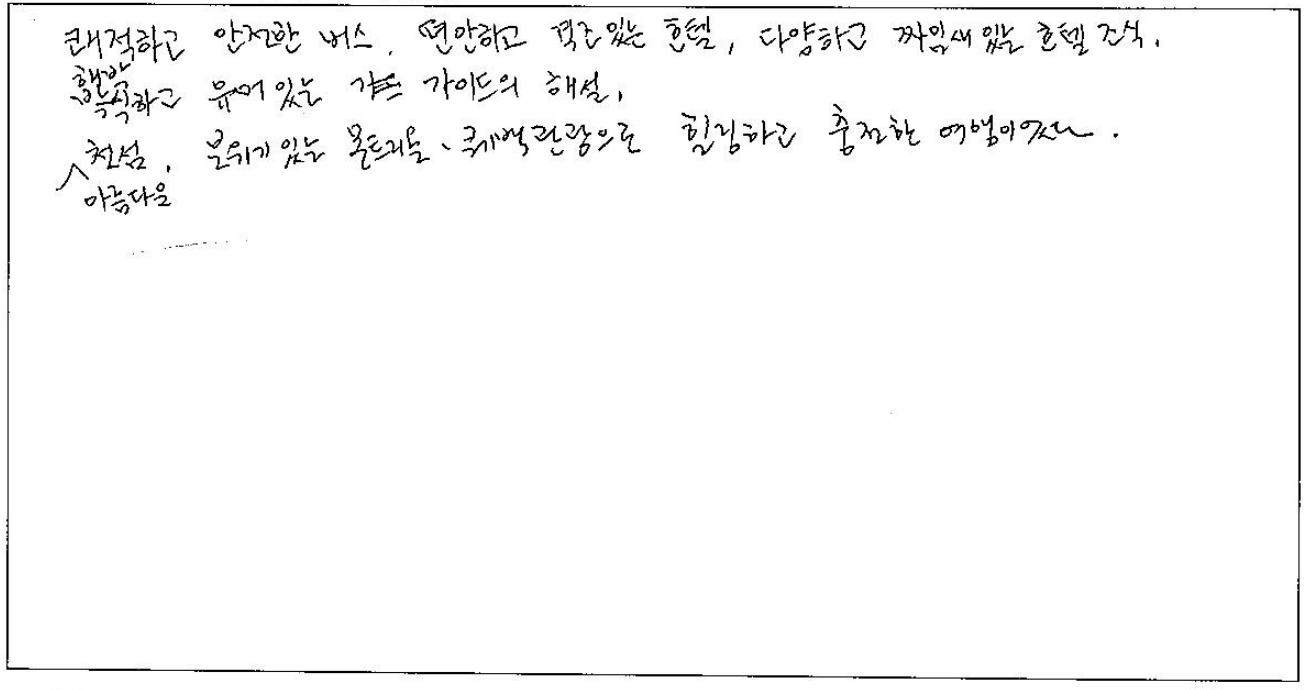 쾌적하고 안전한 버스, 편안하고 격조있는 호텔, 다양하고 짜임새 있는 호텔 조식,
해박하고 유머 있는 가이드의 해설,
아름다운 천섬, 분위기 있는 몬트리올、퀘백관광으로 힐링하고 충전한 여행이었다.